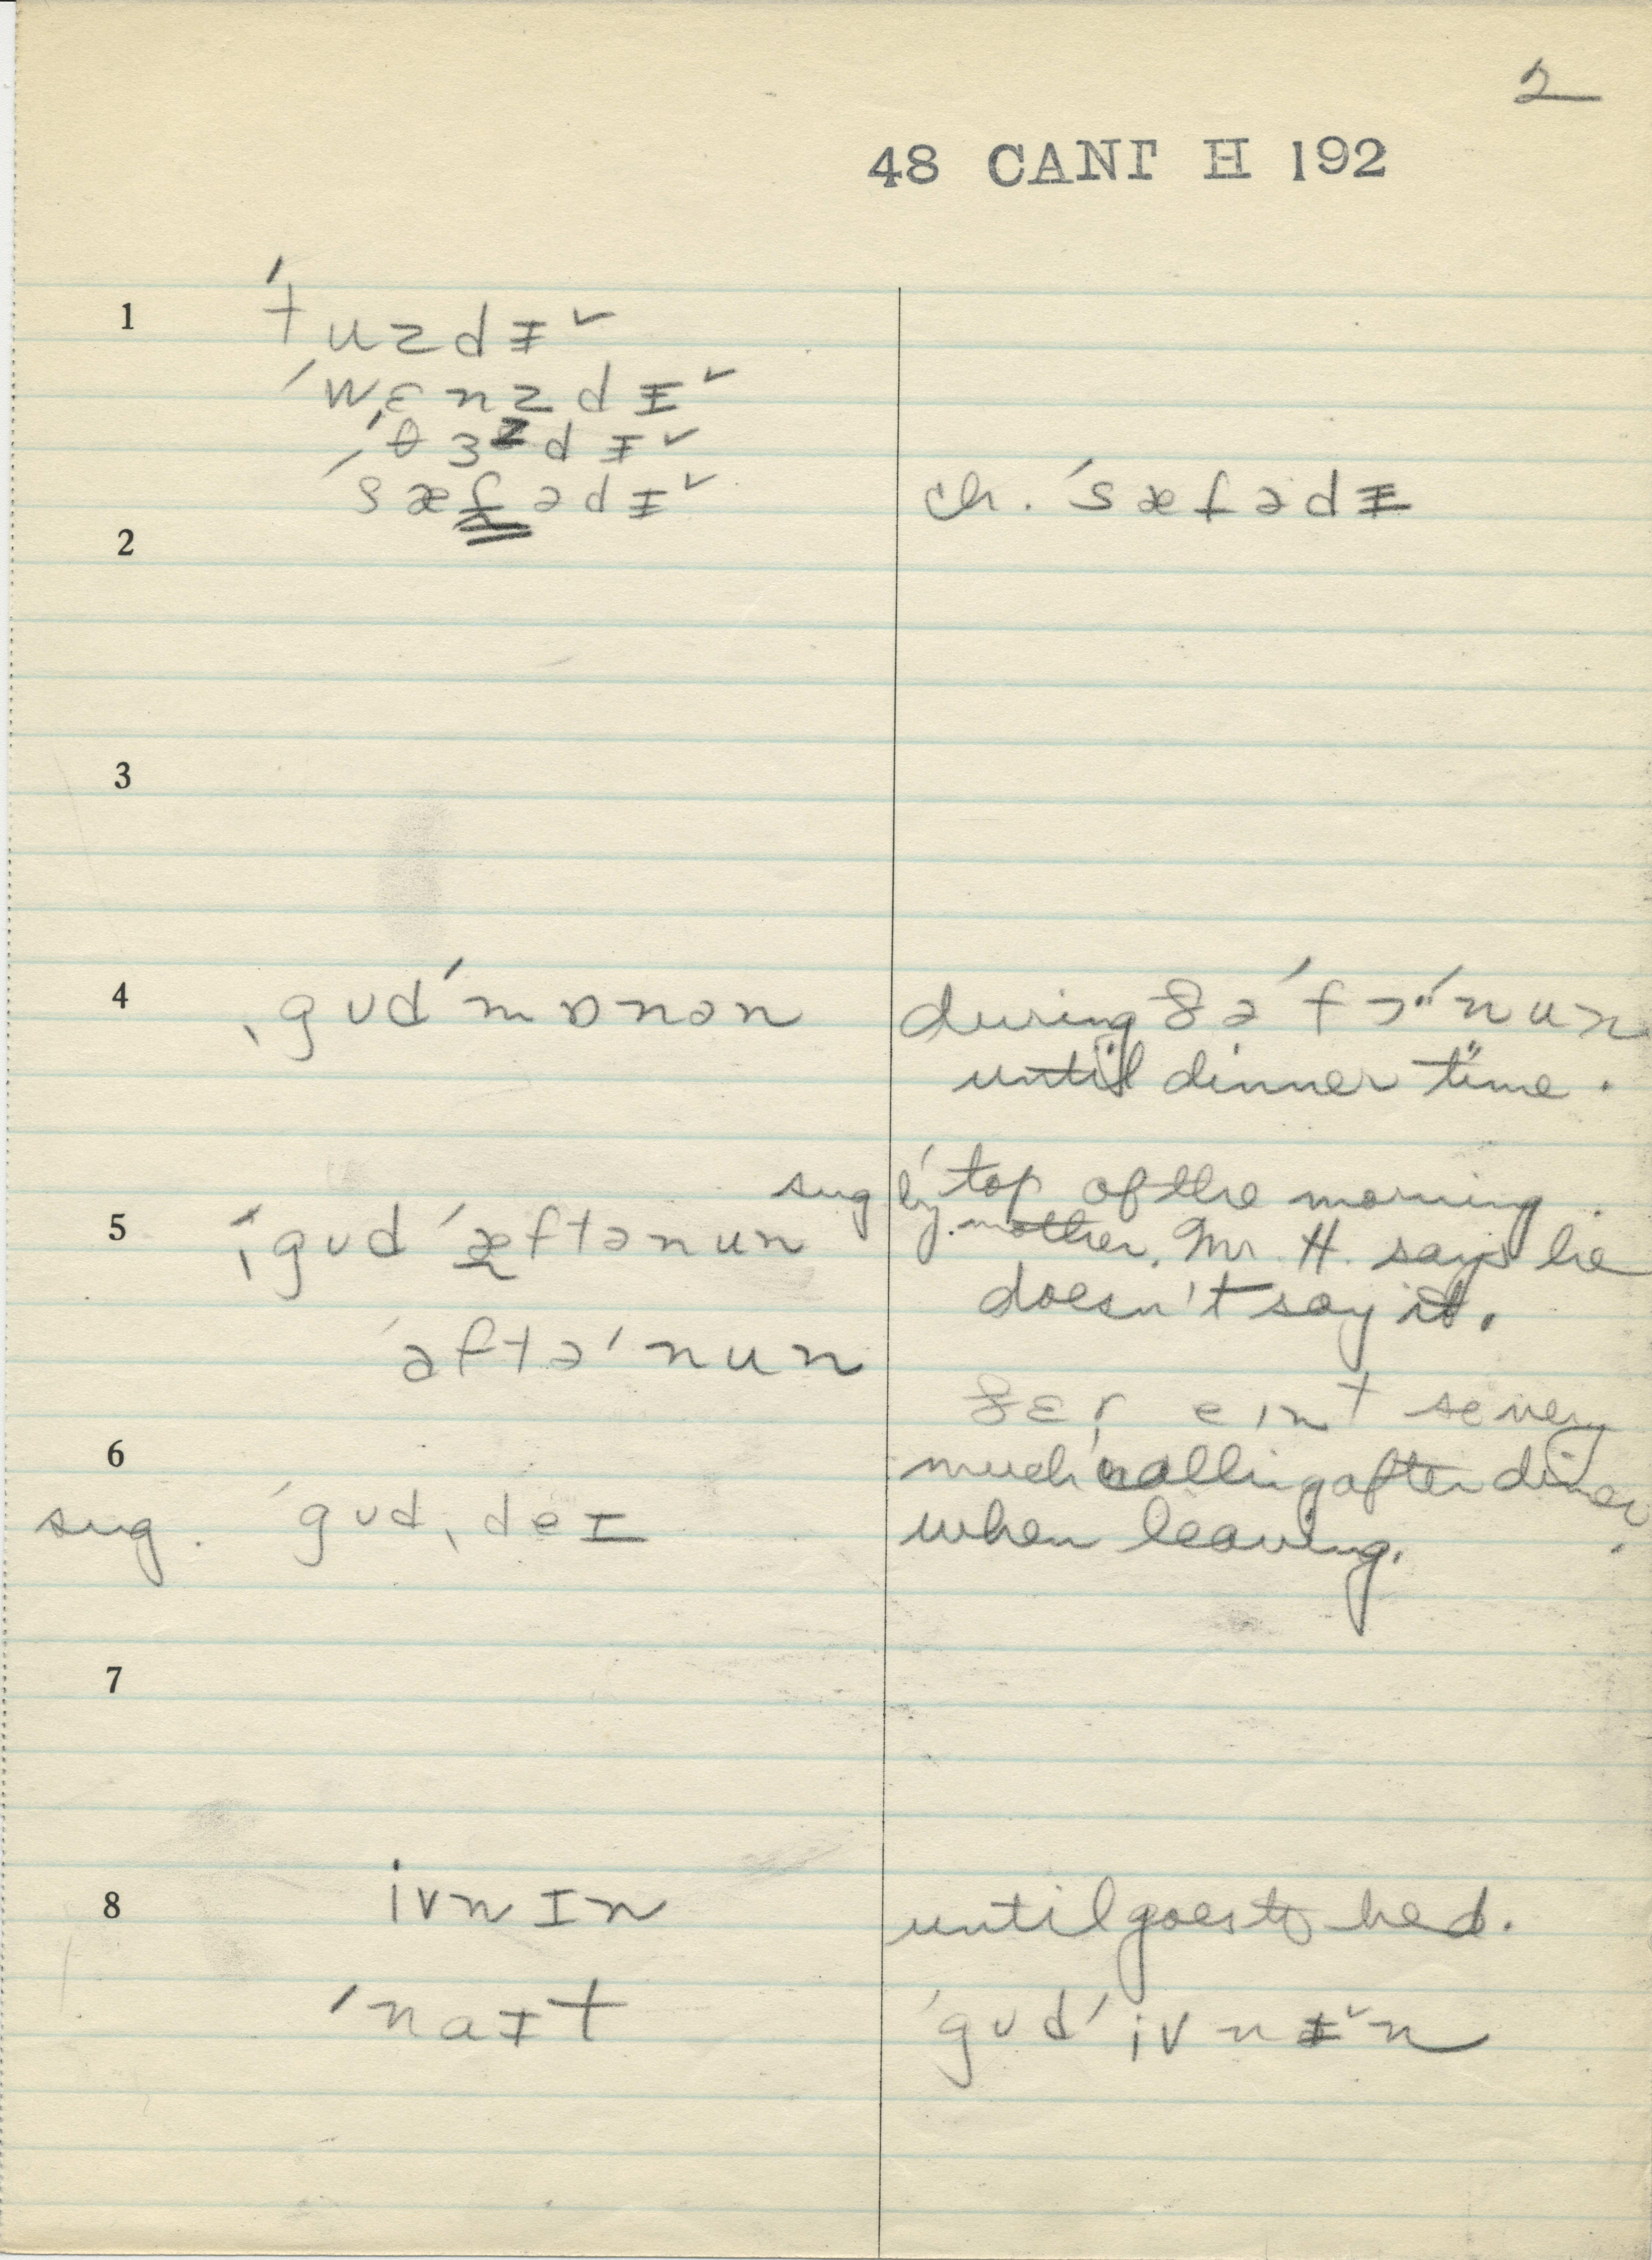 2
48 CANT H 192
1 ˈtuzdɪ̵ˇ
ˈwɛnzdɪ̵ˇ
ˈθɜzdɪ̵ˇ
ˈsæfədɪ̵ˇ
ch. ˈsæfədɪ̵
2
3
4 ˌgʊdˈmɒnən
during ðəˈfɔˈˈnun
until dinner time.
sug by ˈtop of the morning.
mother. Mr. H. says he
doesn't say it.
5 ˌgʊd ˈæftənun
ˈaftəˈnun
ðɛr eɪnt very
much calling after dinner
when leaving.
6
sug. ˈgʊdˌdeɪ
7
8 ivnɪn
until goes to bed.
ˈnaɪt
ˈgʊdˈivnɪ̵ˇn